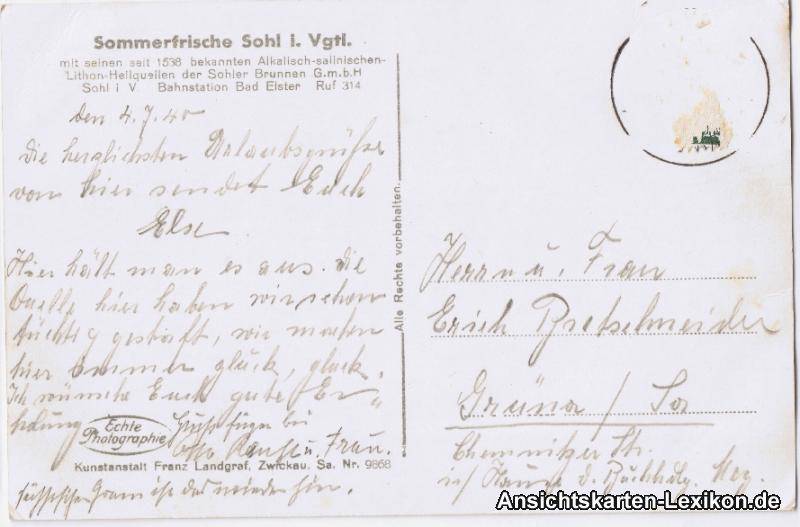 Sommerfrische Sohl i. Vgtl.
mit seinen seit 1538 bekannten Alkalisch-salinischen-
Lithon-Heilquellen der Sohler Brunnen G.m.b.H
Sohl i V. Bahnstation Bad Elster Ruf 314
den 4.7.40
Die herzlichsten Urlaubsgrüße
von hier sendet Euch
Else
Hier hält man es aus. die
Quelle hier haben wir schon
tüchtig, wir machen
hier immer glück, gluck.
Ich wünsche Euch gute Er-
holung
Otto u. Frau.
Echte
Photographie
Kunstanstalt Franz Landgraf, Zwickau. Sa. Nr. 9868
Alle Rechte vorbehalten.
Herrn u. Frau
Erich Bretschneider
Grüna / Sa
Chemnitzer Str.
i/ Hause d. Buchholz. Mey.
Ansichtskarten-Lexikon.de